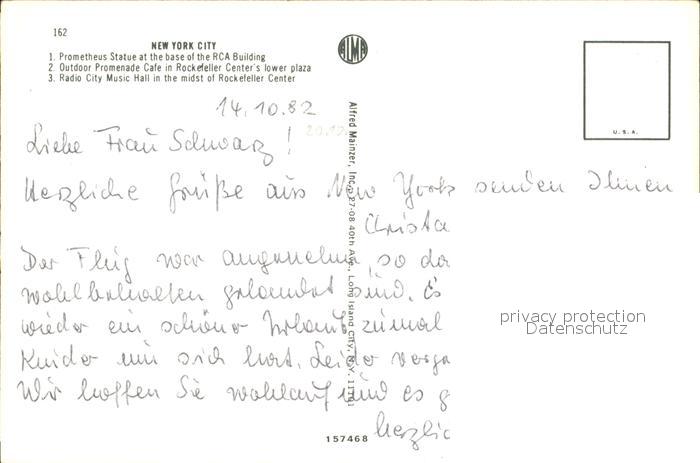 162
NEW YORK CITY
1. Prometheus Statue at the base of the RCA Building
2. Outdoor Promenade Cafe in Rockefeller Center's lower plaza
3. Radio City Music Hall in the midst of Rockefeller Center
U.S.A.
14.10.82
Liebe Frau Schwarz!
Herzliche Grüße aus New York senden Ihnen
Christa
Der Flug war angenehm, so da
wohlbehalten gelandet sind. Es
wieder ein schöner Urlaub zumal
Kinder um sich hat. Leider verga
Wir hoffen Sie wohlauf und es g
Herzlic
Alfred Mainzer, Inc., 27-08 40th Ave., Long Island City, N.Y. 11101
157468
privacy protection
Datenschutz